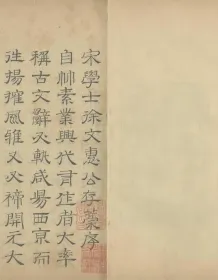 宋學士徐文惠公存藁序
自帥素業興代有作者大率
稱古文辭必軼咸場西京而
進揚搉風雅又必禘開元大